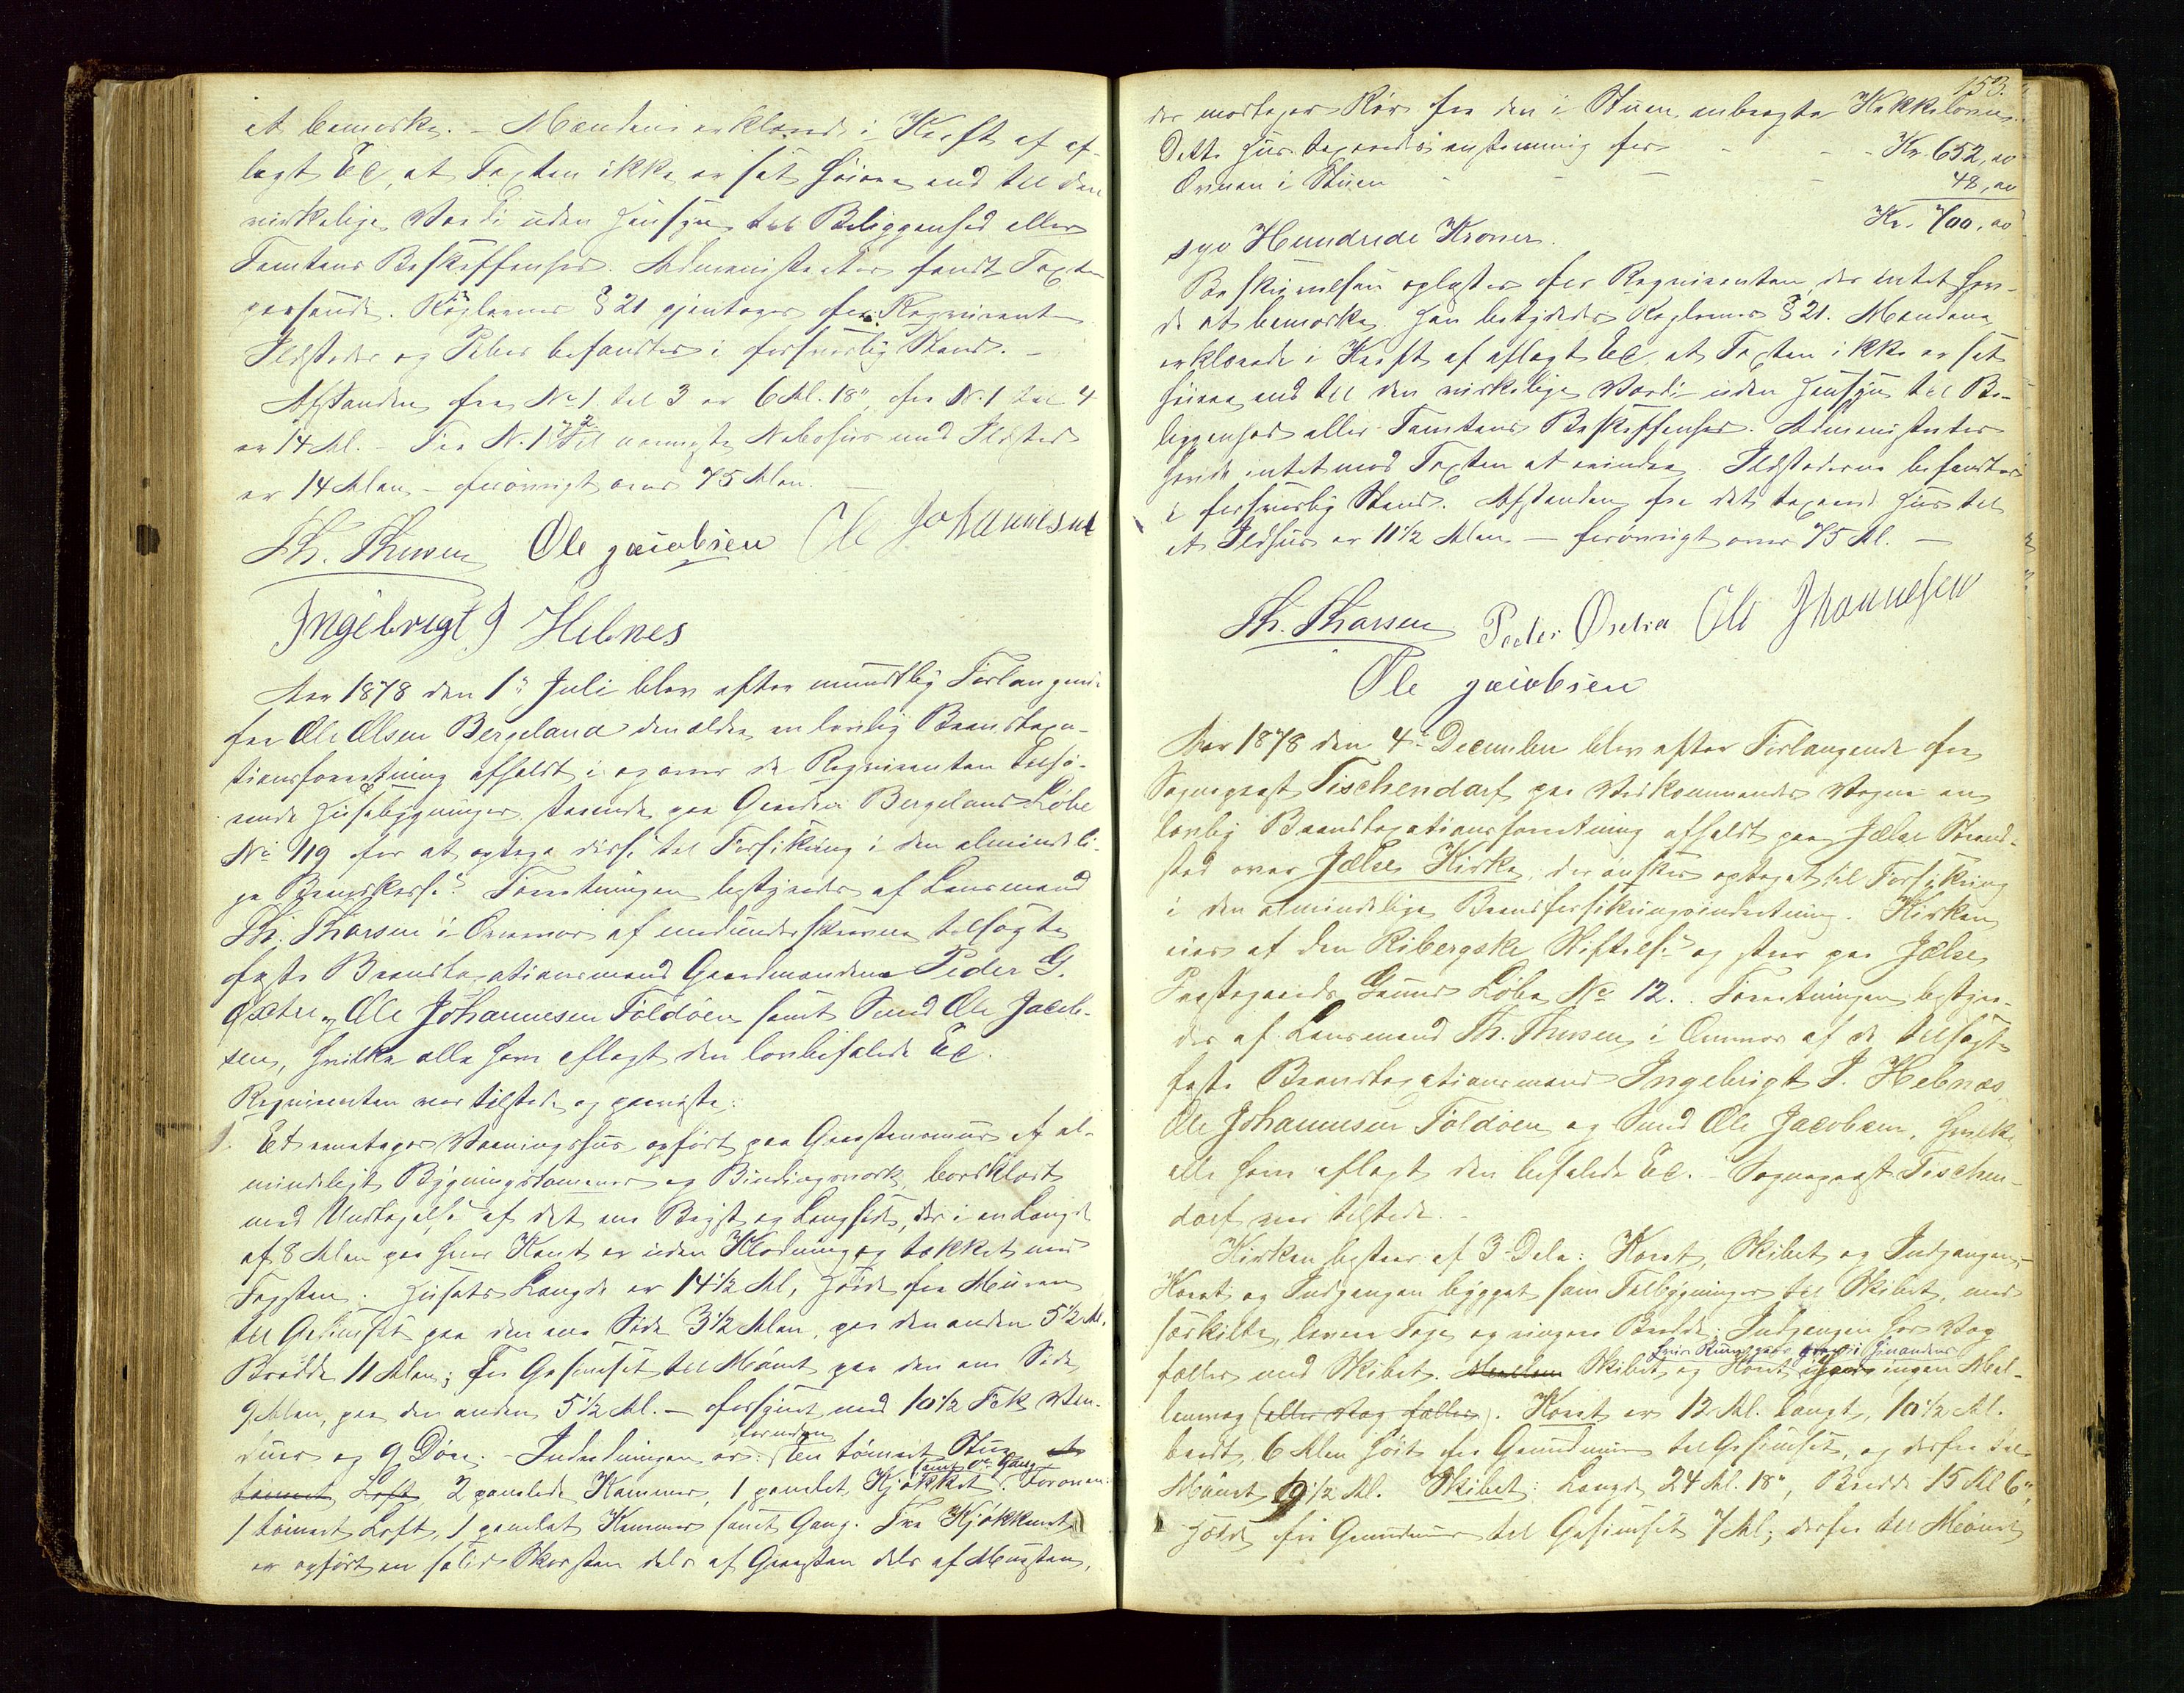 at bemærke. – Mændene erklærede i Kraft af af-
lagt Ed, at Taxten ikke er sat høiere end til den
virkelige Værdi uden Hensyn til Beliggenhed eller
Tomtens Beskaffenhed. Administrator fandt Taxten
passende. Reglernes § 21 gjentages for Rekvirenten
Ildsteder og Piber befandtes i forsvarlig Stand. –
Afstanden fra No 1 til 3 er 6 Al. 18", fra N. 1 til 4
er 14 Al. – Fra N. 1 til nærmeste Nabohuus med Ildsted
er 14 Alen, – forøvrigt over 75 Alen. –
Th. Thorsen Ole Jacobsen Ole Johannesen
Ingebrigt J Hebnes
Aar 1878 den 1ste Juli blev efter mundtlig Forlangende
fra Ole Olsen Bergeland den ældre en lovlig Brandtaxa-
tionsforretning afholdt i og over de Rekvirenten tilhø-
rende Husebygninger staaende paa Gaarden Bergeland Løbe
No 119 for at optage disse til Forsikring i den almindeli-
ge Brandkasse. Forretningen bestyredes af Lensmand
Th. Thorsen i Overvær af medunderskrevne tilsagte
faste Brandtaxationsmænd Gaardmændene Peder G.
Østre og Ole Johannesen Foldøen samt Smed Ole Jacob-
sen, hvilke alle have aflagt den lovbefalede Ed.
Rekvirenten var tilstede og paaviste:
1. Et eenetages Vaaningshus opført paa Graastensmuur af al-
mindeligt Bygningstømmer og Bindingsværk, bordklædt
med Undtagelse af det ene Bryst og Langside, der i en Længde
af 8 Alen paa hver Kant er uden Klædning og tækket med
Tagsten. Husets Længde er 14½ Al, Høide fra Muren
til Gesimset paa den ene Side 3½ Alen, paa den anden 5½ Al.
Bredde 11 Alen; fra Gesimset til Mønet paa den ene Side
9 Alen, paa den anden 5½ Al. – forsynet med 10½ Fek Vin-
duer og 9 Døre. – Indredningen er: forneden En tømret Stue et
tømret Loft, 2 panelede Kammer, 1 panelet Kjøkken samt en Gang. Foroven:
1 tømret Loft, 1 panelet Kammer samt Gang. Fra Kjøkkenet
er opført en solid Skorsten dels af Graasten dels af Mursten,
153.
der modtager Rør fra den i Stuen anbragte Kakkelovn.
Dette Huus taxeredes i enstemmig for – – – Kr. 652,00
Ovnen i Stuen – – – 48,00
Kr. 700,00
syv Hundrede Kroner.
Beskrivelsen oplæstes for Rekvirenten, der intet hav-
de at bemærke. Han betydedes Reglernes § 21. Mændene
erklærede i Kraft af aflagt Ed, at Taxten ikke er sat
høiere end til den virkelige Værdi uden Hensyn til Be-
liggenhed eller Tomtens Beskaffenhed. Administrator
havde intet mod Taxten at erindre. Ildstederne befandtes
i forsvarlig Stand. Afstanden fra det taxerede Huus til
et Ildhuus er 11½ Alen – forøvrigt over 75 Al. –
Th. Thorsen Peder Østre Ole Johannesen
Ole Jacobsen
Aar 1878 den 4de December blev efter Forlangende fra
Sogneprest Tischendorf paa Vedkommendes Vegne en
lovlig Brandtaxationsforretning afholdt paa Jælse Strand-
sted over Jælse Kirke, der ønskes optaget til Forsikring
i den almindelige Brandforsikringsindretning. Kirken
eies af den Ribergske Stiftelse og staar paa Jælse
Præstegaards Grund Løbe No 12. Forretningen bestyre-
des af Lensmand Th. Thorsen i Overvær af de tilsagte
faste Brandtaxationsmænd Ingebrigt J. Hebnes,
Ole Johannesen Foldøen og Smed Ole Jacobsen, hvilke
alle have aflagt den befalede Ed. – Sogneprest Tischen-
dorf var tilstede. –
Kirken bestaar af 3 Dele: Koret, Skibet og Indgangen, –
Koret og Indgangen bygget som Tilbygninger til Skibet, med
særskilte, lavere Tage og ringere Bredde; Indgangen har Væg
fælles med Skibet. Mellem Skibet og Koret ingen Mel-
lemvæg (eller Væg fælles). Koret er 12 Al. langt, 10½ Al.
bredt, 6 Alen høit fra Grundmuur til Gesimset, og derfra til
Mønet 9½ Al. Skibet: Længde 24 Al. 18", Bredde 15 Al 6",
Høide fra Grundmuur til Gesimset 7 Al; derfra til Mønet